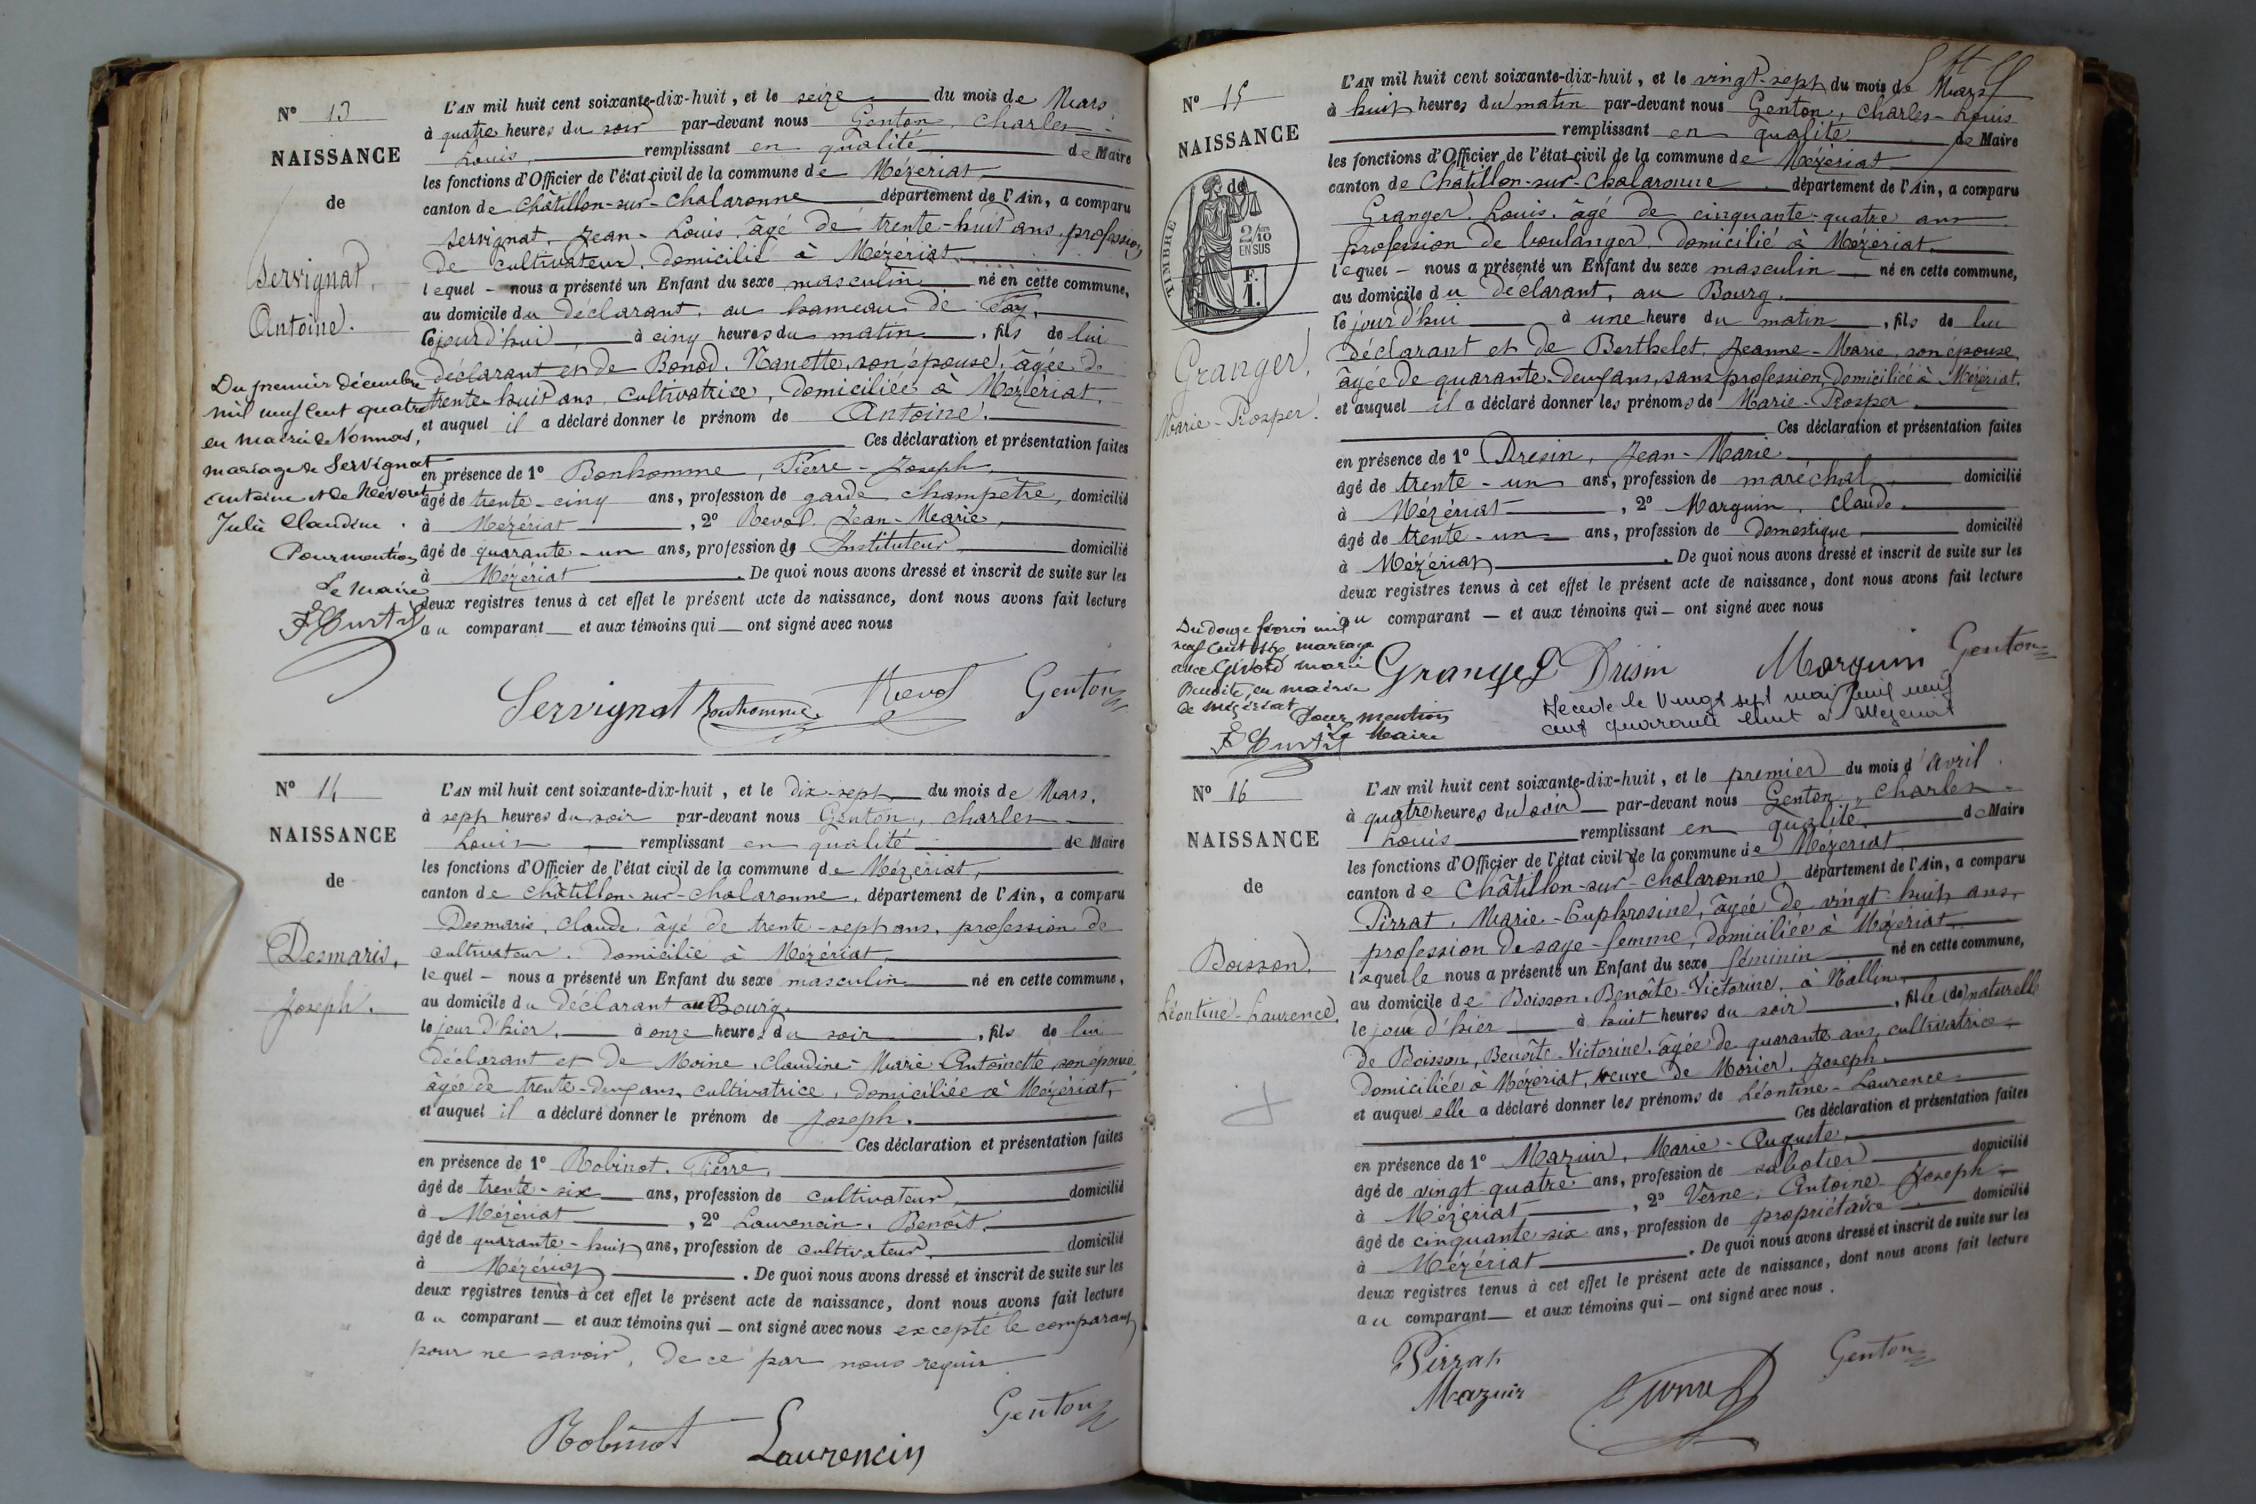 N° 13
NAISSANCE
de
Servignat,
Antoine.
Du premier décembre
mil neuf cent quatre
en mairie de Vonnas,
mariage de Servignat
Antoine et de Névoret
Julie Claudine.
Pour mention
Le Maire
L'AN mil huit cent soixante-dix-huit, et le seize du mois de Mars,
à quatre heures du soir par-devant nous Genton, Charles-
Louis, remplissant en qualité de Maire
les fonctions d'Officier de l'état civil de la commune de Mézériat,
canton de Châtillon-sur-Chalaronne département de l'Ain, a comparu
Servignat, Jean-Louis, âgé de trente-huit ans, profession
de cultivateur, domicilié à Mézériat,
lequel nous a présenté un Enfant du sexe masculin né en cette commune,
au domicile du déclarant, au hameau de Fay,
cejourd'hui, à cinq heures du matin, fils de lui
déclarant et de Bonod, Nanette, son épouse, âgée de
trente-huit ans, cultivatrice, domiciliée à Mézériat,
et auquel il a déclaré donner le prénom de Antoine.
Ces déclaration et présentation faites
en présence de 1° Bonhomme, Pierre-Joseph,
âgé de trente-cinq ans, profession de garde champêtre, domicilié
à Mézériat, 2° Revol, Jean-Marie,
âgé de quarante-un ans, profession de Instituteur domicilié
à Mézériat. De quoi nous avons dressé et inscrit de suite sur les
deux registres tenus à cet effet le présent acte de naissance, dont nous avons fait lecture
au comparant et aux témoins qui ont signé avec nous
Servignat Bonhomme Revol Genton
N° 14
NAISSANCE
de
Desmaris,
Joseph.
L'AN mil huit cent soixante-dix-huit, et le dix-sept du mois de Mars,
à sept heures du soir par-devant nous Genton, Charles-
Louis remplissant en qualité de Maire
les fonctions d'Officier de l'état civil de la commune de Mézériat,
canton de Châtillon-sur-Chalaronne, département de l'Ain, a comparu
Desmaris, Claude, âgé de trente-sept ans, profession de
cultivateur, domicilié à Mézériat,
lequel nous a présenté un Enfant du sexe masculin né en cette commune,
au domicile du déclarant au Bourg,
le jour d'hier, à onze heures du soir, fils de lui
déclarant et de Moine, Claudine-Marie Antoinette, son épouse,
âgée de trente-deux ans, cultivatrice, domiciliée à Mézériat,
et auquel il a déclaré donner le prénom de Joseph.
Ces déclaration et présentation faites
en présence de 1° Robinot, Pierre,
âgé de trente-six ans, profession de cultivateur, domicilié
à Mézériat, 2° Laurencin, Benoît,
âgé de quarante-huit ans, profession de cultivateur, domicilié
à Mézériat. De quoi nous avons dressé et inscrit de suite sur les
deux registres tenus à cet effet le présent acte de naissance, dont nous avons fait lecture
au comparant et aux témoins qui ont signé avec nous excepté le comparant
pour ne savoir, de ce par nous requis
Robinot Laurencin Genton
N° 15
NAISSANCE
de
TIMBRE
2/10
EN SUS
F.
1.
Granger,
Marie-Prosper.
Du douze février mil
neuf cent six mariage
avec Givord Marie
Benoite, en mairie
de Mézériat
Pour mention
Le Maire
L'AN mil huit cent soixante-dix-huit, et le vingt-sept du mois de Mars
à huit heures du matin par-devant nous Genton, Charles-Louis
remplissant en qualité de Maire
les fonctions d'Officier de l'état civil de la commune de Mézériat
canton de Châtillon-sur-Chalaronne département de l'Ain, a comparu
Granger, Louis, âgé de cinquante-quatre ans
profession de boulanger, domicilié à Mézériat,
lequel nous a présenté un Enfant du sexe masculin né en cette commune,
au domicile du déclarant, au Bourg,
cejourd'hui à une heure du matin, fils de lui
déclarant et de Berthelet, Jeanne-Marie, son épouse,
âgée de quarante-deux ans, sans profession, domiciliée à Mézériat,
et auquel il a déclaré donner les prénoms de Marie-Prosper.
Ces déclaration et présentation faites
en présence de 1° Dresin, Jean-Marie
âgé de trente-un ans, profession de maréchal, domicilié
à Mézériat, 2° Marguin, Claude,
âgé de trente-un ans, profession de domestique domicilié
à Mézériat. De quoi nous avons dressé et inscrit de suite sur les
deux registres tenus à cet effet le présent acte de naissance, dont nous avons fait lecture
au comparant et aux témoins qui ont signé avec nous
Granger Drisin Marguin Genton
Décédé le vingt sept mai mil neuf
cent quarante huit à Mézériat
N° 16
NAISSANCE
de
Boisson,
Léontine-Laurence.
L'AN mil huit cent soixante-dix-huit, et le premier du mois d'Avril
à quatre heures du soir par-devant nous Genton, Charles-
Louis remplissant en qualité de Maire
les fonctions d'Officier de l'état civil de la commune de Mézériat
canton de Châtillon-sur-Chalaronne département de l'Ain, a comparu
Pirrat, Marie-Euphrosine, âgée de vingt-huit ans,
profession de sage-femme, domiciliée à Mézériat,
laquelle nous a présenté un Enfant du sexe féminin né en cette commune,
au domicile de Boisson, Benoîte-Victorine, à Nallin,
le jour d'hier à huit heures du soir, fille (de) naturelle
de Boisson, Benoîte-Victorine, âgée de quarante ans, cultivatrice,
domiciliée à Mézériat, veuve de Morier, Joseph,
et auquel elle a déclaré donner les prénoms de Léontine-Laurence
Ces déclaration et présentation faites
en présence de 1° Mazuir, Marie-Auguste,
âgé de vingt-quatre ans, profession de sabotier domicilié
à Mézériat, 2° Verne, Antoine Joseph
âgé de cinquante six ans, profession de propriétaire domicilié
à Mézériat. De quoi nous avons dressé et inscrit de suite sur les
deux registres tenus à cet effet le présent acte de naissance, dont nous avons fait lecture
au comparant et aux témoins qui ont signé avec nous.
Pirrat Genton
Mazuir Verne